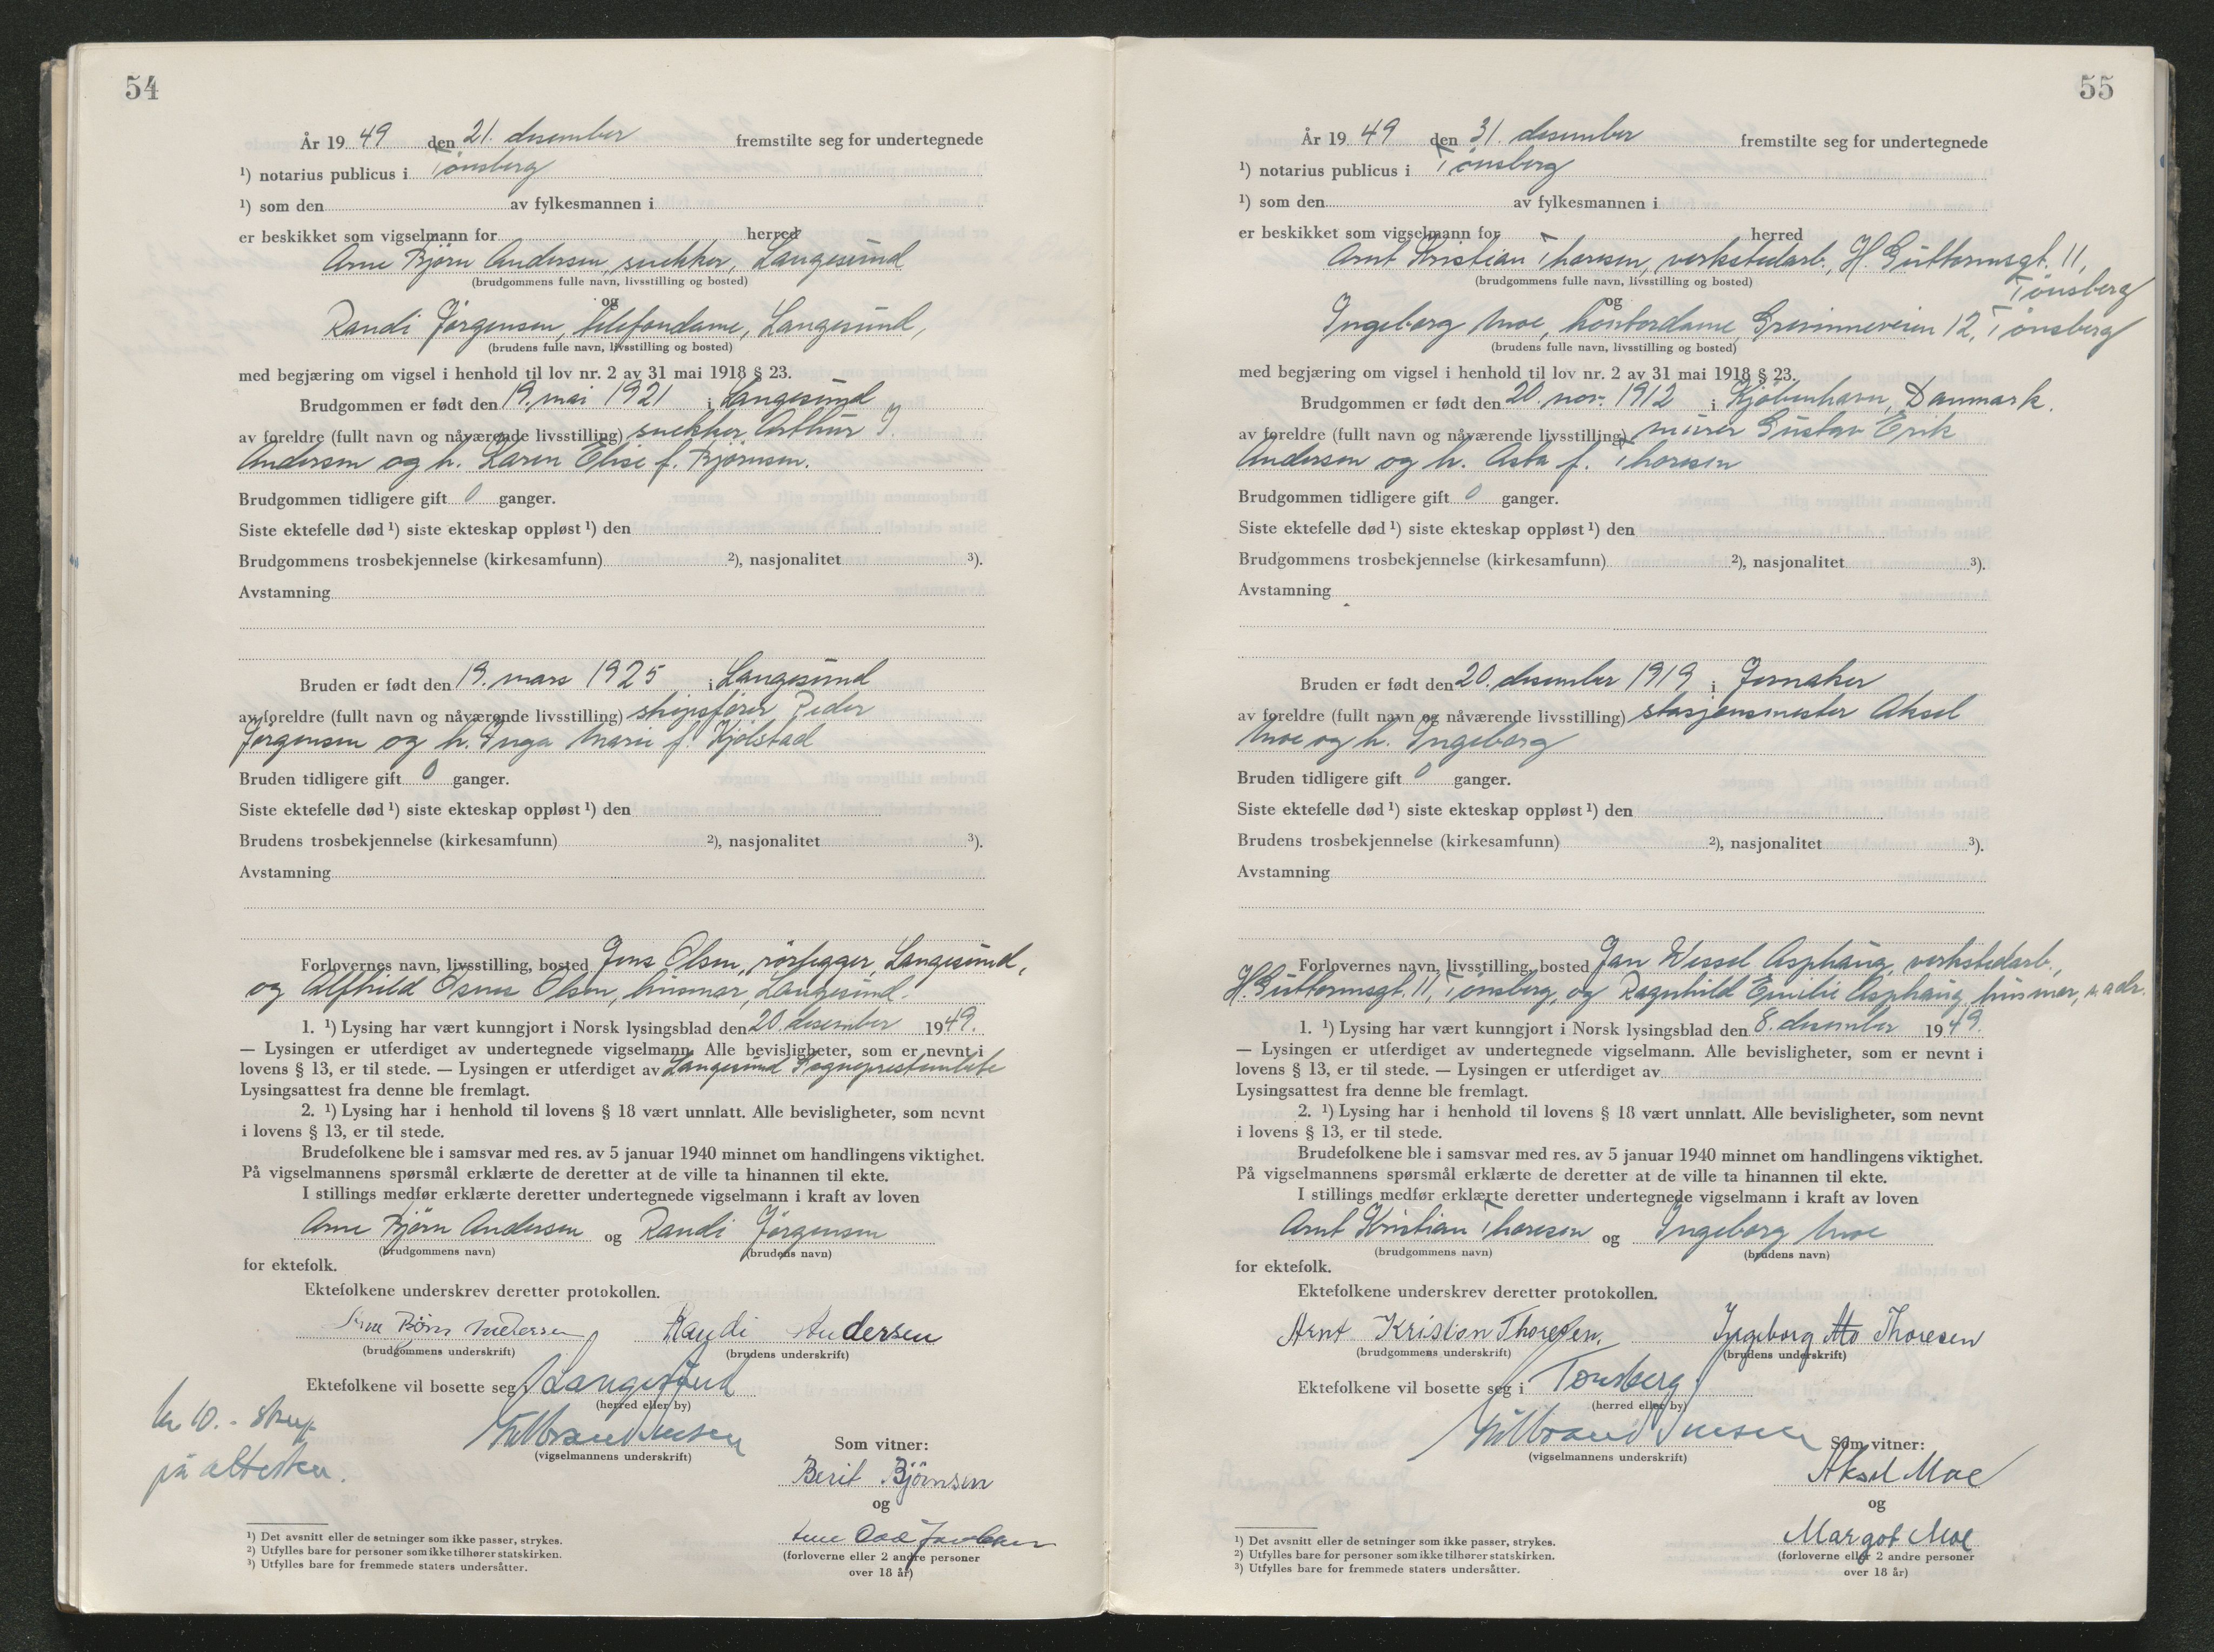 54
År 19 49 den 21. desember fremstilte seg for undertegnede
¹) notarius publicus i Tønsberg
¹) som den av fylkesmannen i
er beskikket som vigselmann for herred
Arne Bjørn Andersen, snekker, Langesund
(brudgommens fulle navn, livsstilling og bosted)
og
Randi Jørgensen, telefondame, Langesund,
(brudens fulle navn, livsstilling og bosted)
med begjæring om vigsel i henhold til lov nr. 2 av 31 mai 1918 § 23.
Brudgommen er født den 19. mai 1921 i Langesund
av foreldre (fullt navn og nåværende livsstilling) snekker Arthur J.
Andersen og h. Karen Elise f. Bjørnsen.
Brudgommen tidligere gift 0 ganger.
Siste ektefelle død ¹) siste ekteskap oppløst ¹) den
Brudgommens trosbekjennelse (kirkesamfunn) ²), nasjonalitet ³).
Avstamning
Bruden er født den 19. mars 1925 i Langesund
av foreldre (fullt navn og nåværende livsstilling) skipsfører Peder
Jørgensen og h. Inga Marie f. Kjølstad
Bruden tidligere gift 0 ganger.
Siste ektefelle død ¹) siste ekteskap oppløst ¹) den
Brudens trosbekjennelse (kirkesamfunn) ²), nasjonalitet ³).
Avstamning
Forlovernes navn, livsstilling, bosted Jens Olsen, rørlegger, Langesund,
og Alfhild Olsen, husmor, Langesund.
1. ¹) Lysing har vært kunngjort i Norsk lysingsblad den 20. desember 1949.
— Lysingen er utferdiget av undertegnede vigselmann. Alle bevisligheter, som er nevnt i
lovens § 13, er til stede. — Lysingen er utferdiget av Langesund Sogneprestembete
Lysingsattest fra denne ble fremlagt.
2. ¹) Lysing har i henhold til lovens § 18 vært unnlatt. Alle bevisligheter, som nevnt
i lovens § 13, er til stede.
Brudefolkene ble i samsvar med res. av 5 januar 1940 minnet om handlingens viktighet.
På vigselmannens spørsmål erklærte de deretter at de ville ta hinannen til ekte.
I stillings medfør erklærte deretter undertegnede vigselmann i kraft av loven
Arne Bjørn Andersen og Randi Jørgensen
(brudgommens navn) (brudens navn)
for ektefolk.
Ektefolkene underskrev deretter protokollen.
Arne Bjørn Andersen Randi Andersen
(brudgommens underskrift) (brudens underskrift)
Ektefolkene vil bosette seg i Langesund
(herred eller by)
kr 10.- stemp.
på attesten.
(vigselmannens underskrift)
Som vitner:
Berit Bjørnsen
og
Odd Jacobsen
(forloverne eller 2 andre personer
over 18 år)
¹) Det avsnitt eller de setninger som ikke passer, strykes.
²) Utfylles bare for personer som ikke tilhører statskirken.
³) Utfylles bare for fremmede staters undersåtter.
55
År 19 49 den 31. desember fremstilte seg for undertegnede
¹) notarius publicus i Tønsberg
¹) som den av fylkesmannen i
er beskikket som vigselmann for herred
Arnt Kristian Thoresen, verkstedarb., H. Guttormsgt. 11,
Tønsberg
(brudgommens fulle navn, livsstilling og bosted)
og
Ingeborg Moe, kontordame, Grevinneveien 12, Tønsberg
(brudens fulle navn, livsstilling og bosted)
med begjæring om vigsel i henhold til lov nr. 2 av 31 mai 1918 § 23.
Brudgommen er født den 20. nov. 1912 i Kjøbenhavn, Danmark.
av foreldre (fullt navn og nåværende livsstilling) murer Gustav Erik
Andersen og h. Asta f. Thoresen
Brudgommen tidligere gift 0 ganger.
Siste ektefelle død ¹) siste ekteskap oppløst ¹) den
Brudgommens trosbekjennelse (kirkesamfunn) ²), nasjonalitet ³).
Avstamning
Bruden er født den 20. desember 1919 i Jevnaker
av foreldre (fullt navn og nåværende livsstilling) stasjonsmester Aksel
Moe og h. Ingeborg
Bruden tidligere gift 0 ganger.
Siste ektefelle død ¹) siste ekteskap oppløst ¹) den
Brudens trosbekjennelse (kirkesamfunn) ²), nasjonalitet ³).
Avstamning
Forlovernes navn, livsstilling, bosted Jan Wessel Asphaug, verkstedarb.,
H. Guttormsgt. 11, Tønsberg, og Ragnhild Emilie Asphaug, husmor, s. adr.
1. ¹) Lysing har vært kunngjort i Norsk lysingsblad den 8. desember 1949.
— Lysingen er utferdiget av undertegnede vigselmann. Alle bevisligheter, som er nevnt i
lovens § 13, er til stede. — Lysingen er utferdiget av
Lysingsattest fra denne ble fremlagt.
2. ¹) Lysing har i henhold til lovens § 18 vært unnlatt. Alle bevisligheter, som nevnt
i lovens § 13, er til stede.
Brudefolkene ble i samsvar med res. av 5 januar 1940 minnet om handlingens viktighet.
På vigselmannens spørsmål erklærte de deretter at de ville ta hinannen til ekte.
I stillings medfør erklærte deretter undertegnede vigselmann i kraft av loven
Arnt Kristian Thoresen og Ingeborg Moe
(brudgommens navn) (brudens navn)
for ektefolk.
Ektefolkene underskrev deretter protokollen.
Arnt Kristian Thoresen. Ingeborg Thoresen
(brudgommens underskrift) (brudens underskrift)
Ektefolkene vil bosette seg i Tønsberg
(herred eller by)
(vigselmannens underskrift)
Som vitner:
Aksel Moe
og
Margot Moe
(forloverne eller 2 andre personer
over 18 år)
¹) Det avsnitt eller de setninger som ikke passer, strykes.
²) Utfylles bare for personer som ikke tilhører statskirken.
³) Utfylles bare for fremmede staters undersåtter.